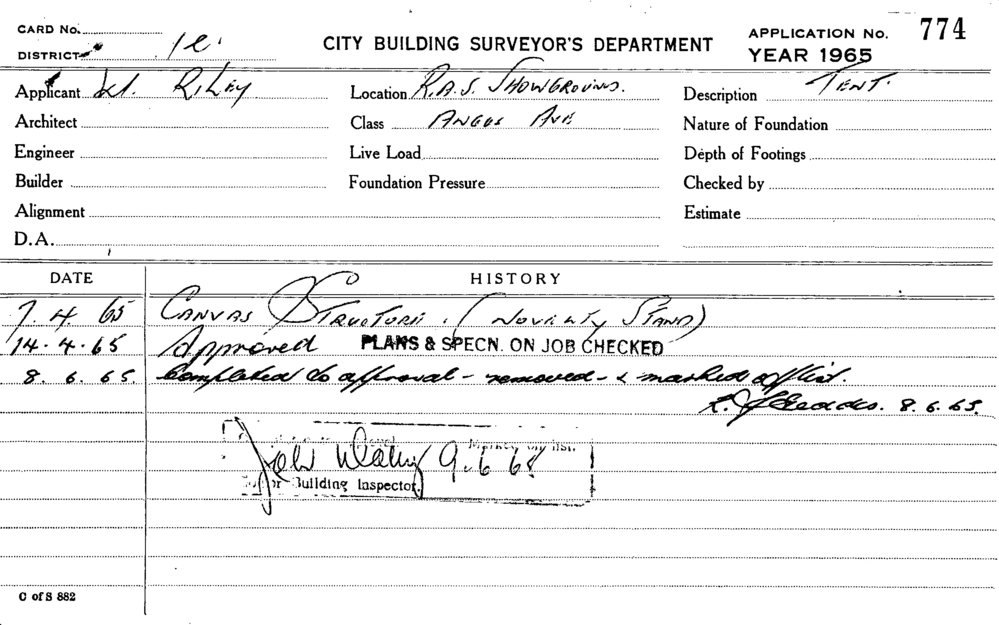 CARD No.
DISTRICT 1e.
CITY BUILDING SURVEYOR'S DEPARTMENT
APPLICATION No. 774
YEAR 1965
Applicant W. Riley
Location R.A.S. Showgrounds.
Description Tent.
Architect
Class Angus Ave
Nature of Foundation
Engineer
Live Load
Depth of Footings
Builder
Foundation Pressure
Checked by
Alignment
Estimate
D.A.
DATE HISTORY
7. 4. 65 Canvas Structure. (Novelty Stand)
14. 4. 65 Approved PLANS & SPECN. ON JOB CHECKED
8. 6. 65. Completed to approval - removed - & marked off list.
8. 6. 65.
Marked off list.
9. 6 65
Building Inspector.
C of S 882